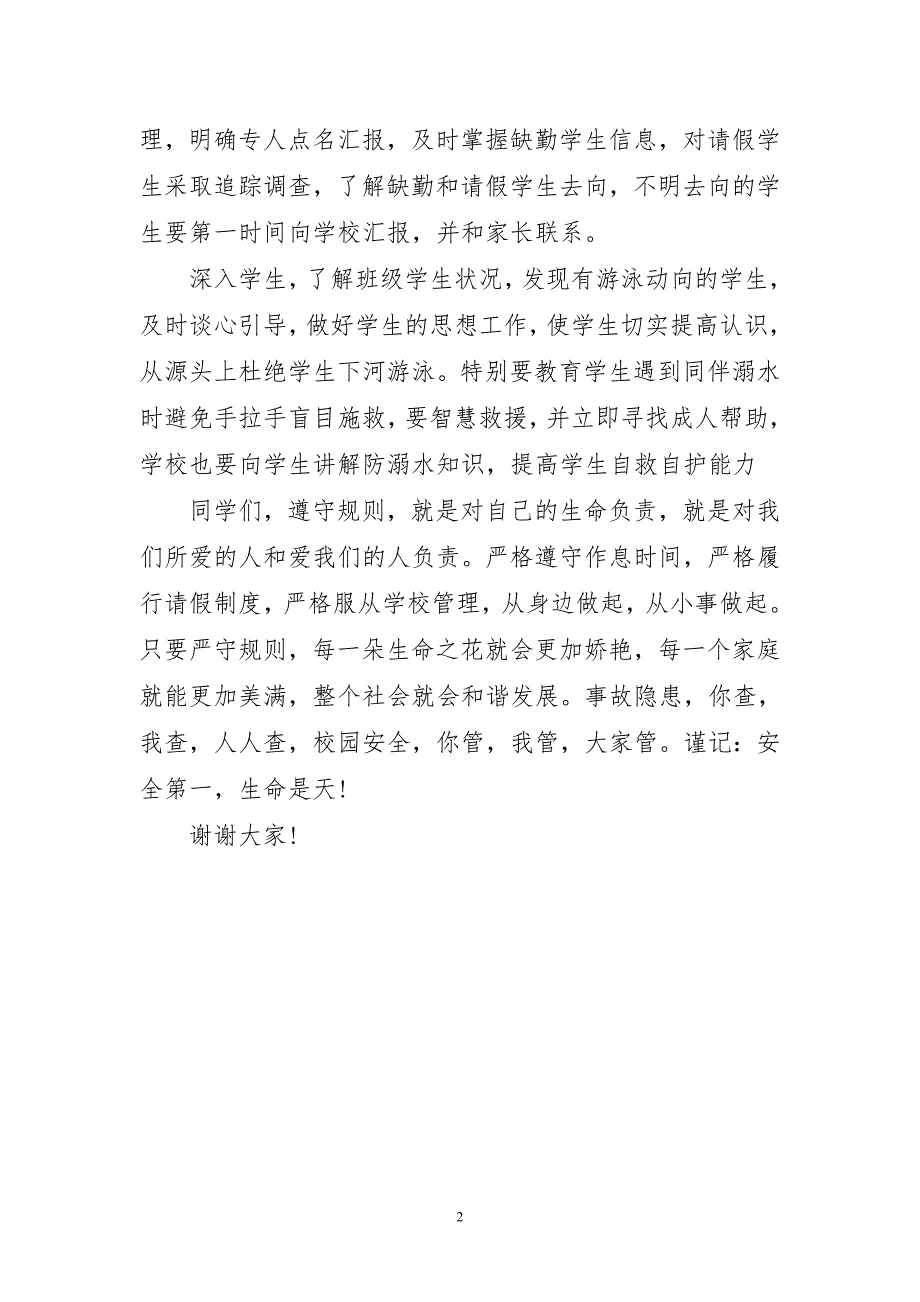 理，明确专人点名汇报，及时掌握缺勤学生信息，对请假学
生采取追踪调查，了解缺勤和请假学生去向，不明去向的学
生要第一时间向学校汇报，并和家长联系。
深入学生，了解班级学生状况，发现有游泳动向的学生，
及时谈心引导，做好学生的思想工作，使学生切实提高认识，
从源头上杜绝学生下河游泳。特别要教育学生遇到同伴溺水
时避免手拉手盲目施救，要智慧救援，并立即寻找成人帮助，
学校也要向学生讲解防溺水知识，提高学生自救自护能力
同学们，遵守规则，就是对自己的生命负责，就是对我
们所爱的人和爱我们的人负责。严格遵守作息时间，严格履
行请假制度，严格服从学校管理，从身边做起，从小事做起。
只要严守规则，每一朵生命之花就会更加娇艳，每一个家庭
就能更加美满，整个社会就会和谐发展。事故隐患，你查，
我查，人人查，校园安全，你管，我管，大家管。谨记：安
全第一，生命是天!
谢谢大家!
2